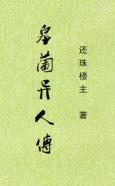 皋蘭异人傳
还珠楼主 著